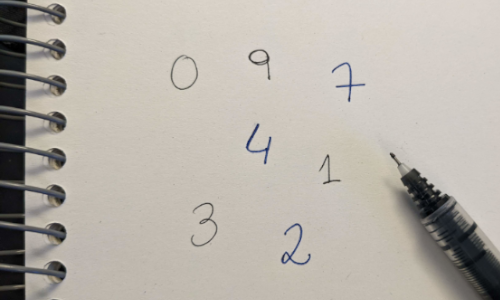 0 9 7
4 1
3 2